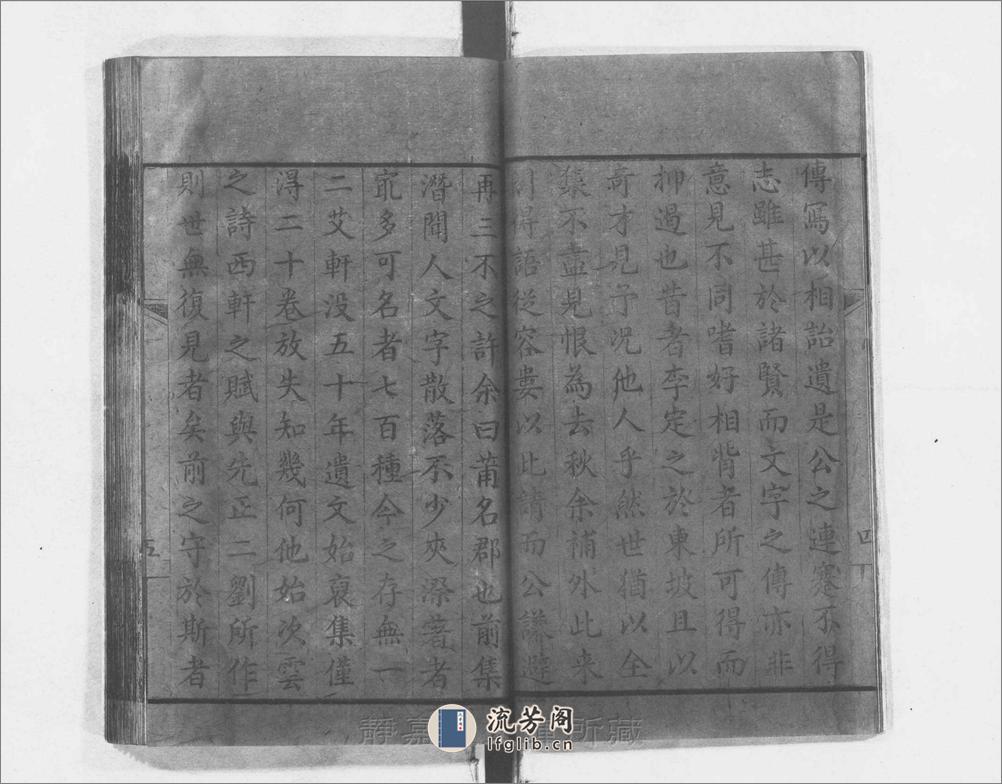 傳寫以相詒遺是公之連蹇不得
志雖甚於諸賢而文字之傳亦非
意見不同嗜好相背者所可得而
抑過也昔者李定之於東坡且以
奇才見予况他人乎然世猶以全
集不盡見恨為去秋余補外此来
得語從容婁以此請而公謙避
再三不之許余曰莆名郡也前集
潛聞人文字散落不少夾漈著者
宂多可名者七百種今之存無一
二艾軒没五十年遺文始裒集僅
淂二十卷放失知幾何他始次雲
之詩西軒之賦與先正二劉所作
則世無復見者矣前之守於斯者
四
五
靜嘉 所藏
流芳阁
lfglib.cn